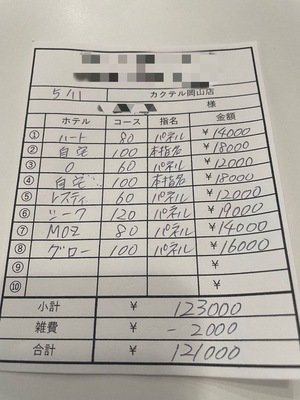 5/11 カクテル岡山店
様
ホテル コース 指名 金額
① ハート 80 パネル ¥14000
② 自宅 100 本指名 ¥18000
③ O 60 パネル ¥12000
④ 自宅 100 本指名 ¥18000
⑤ レスティ 60 パネル ¥12000
⑥ シーク 120 パネル ¥19000
⑦ MOZ 80 パネル ¥14000
⑧ グロー 100 パネル ¥16000
⑨ ¥
⑩ ¥
小計 ¥ 123000
雑費 ¥ -2000
合計 ¥ 121000